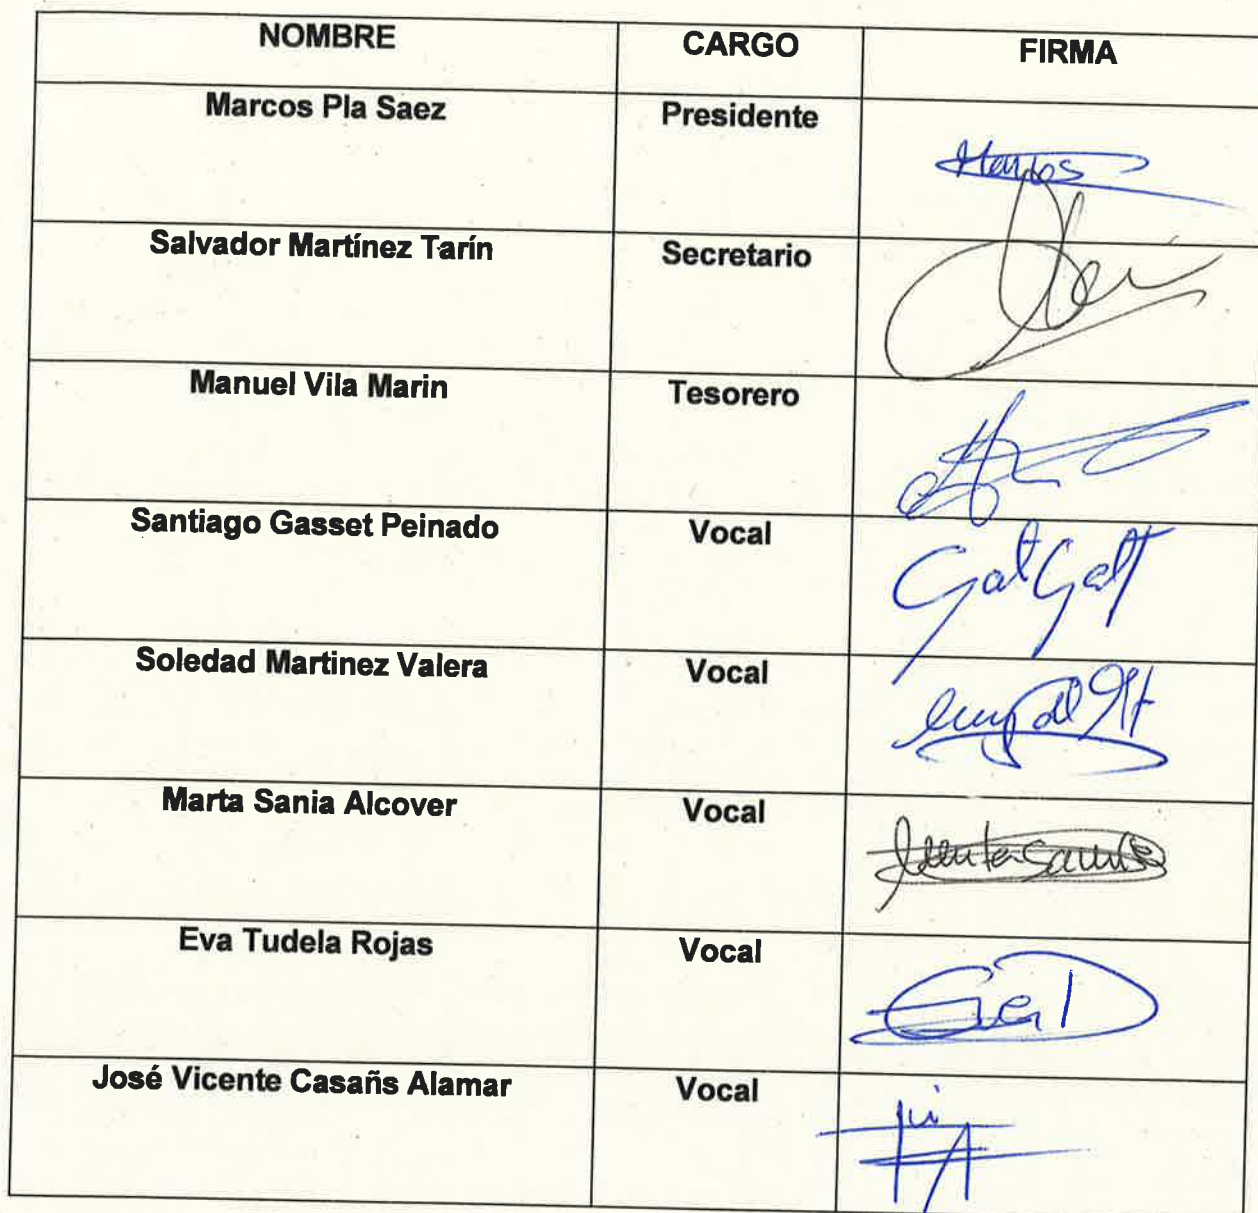 NOMBRE CARGO FIRMA
Marcos Pla Saez Presidente
Marcos
Salvador Martínez Tarín Secretario
Manuel Vila Marin Tesorero
Santiago Gasset Peinado Vocal
Soledad Martinez Valera Vocal
Marta Sania Alcover Vocal
Eva Tudela Rojas Vocal
José Vicente Casañs Alamar Vocal